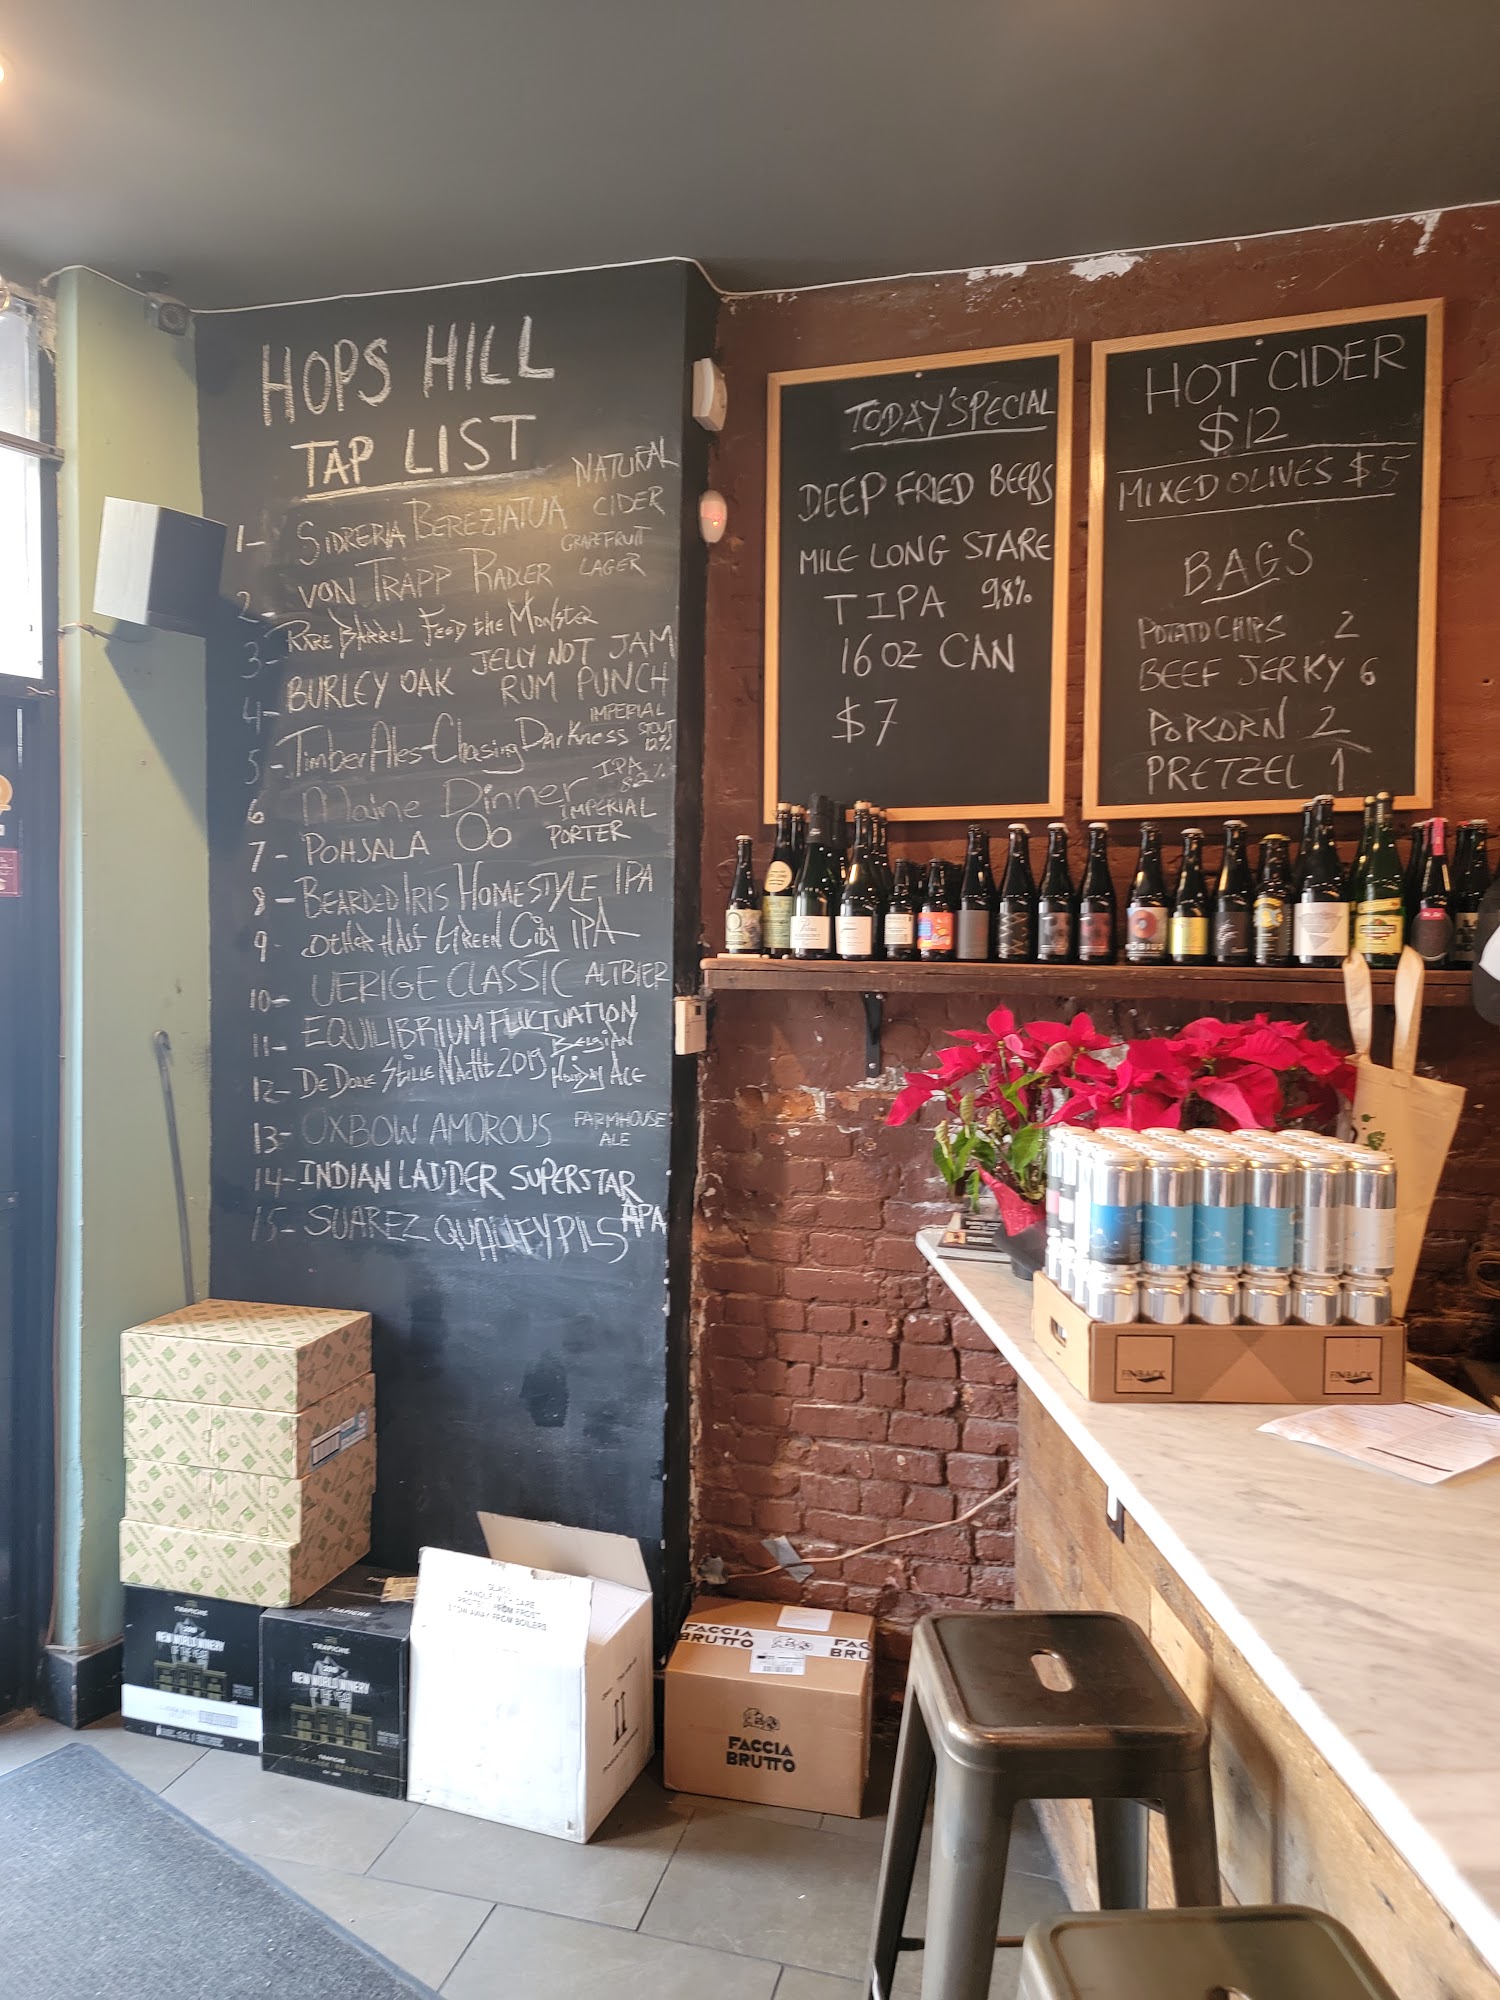 HOPS HILL
TAP LIST
1- SIDRERIA BEREZIATUA NATURAL CIDER
2- VON TRAPP RADLER GRAPEFRUIT LAGER
3- RARE BARREL FEED the MONSTER
4- BURLEY OAK JELLY NOT JAM RUM PUNCH
5- Timber Ales-Chasing Darkness IMPERIAL STOUT 12%
6 Maine Dinner IPA 8.2%
7- POHJALA Öö IMPERIAL PORTER
8- BEARDED IRIS HOMESTYLE IPA
9- OTHER HALF GREEN City IPA
10- UERIGE CLASSIC ALTBIER
11- EQUILIBRIUM FLUCTUATION
12- DE DOLE STILLE NACHT 2019 BELGIAN HOLIDAY ALE
13- OXBOW AMOROUS FARMHOUSE ALE
14- INDIAN LADDER SUPERSTAR APA
15- SUAREZ QUALIFY PILS
TODAY'SPECIAL
DEEP FRIED BEERS
MILE LONG STARE
TIPA 9.8%
16 OZ CAN
$7
HOT CIDER
$12
MIXED OLIVES $5
BAGS
POTATO CHIPS 2
BEEF JERKY 6
POPCORN 2
PRETZEL 1
FINBACK
FINBACK
TRAPICHE
2019
NEW WORLD WINERY
OF THE YEAR
TRAPICHE
2019
NEW WORLD WINERY
OF THE YEAR
TRAPICHE
OAK CASK RESERVE
GLASS
HANDLE WITH CARE
PROTECT FROM FROST
STOW AWAY FROM BOILERS
FACCIA
BRUTTO
FAC
BRU
FACCIA
BRUTTO